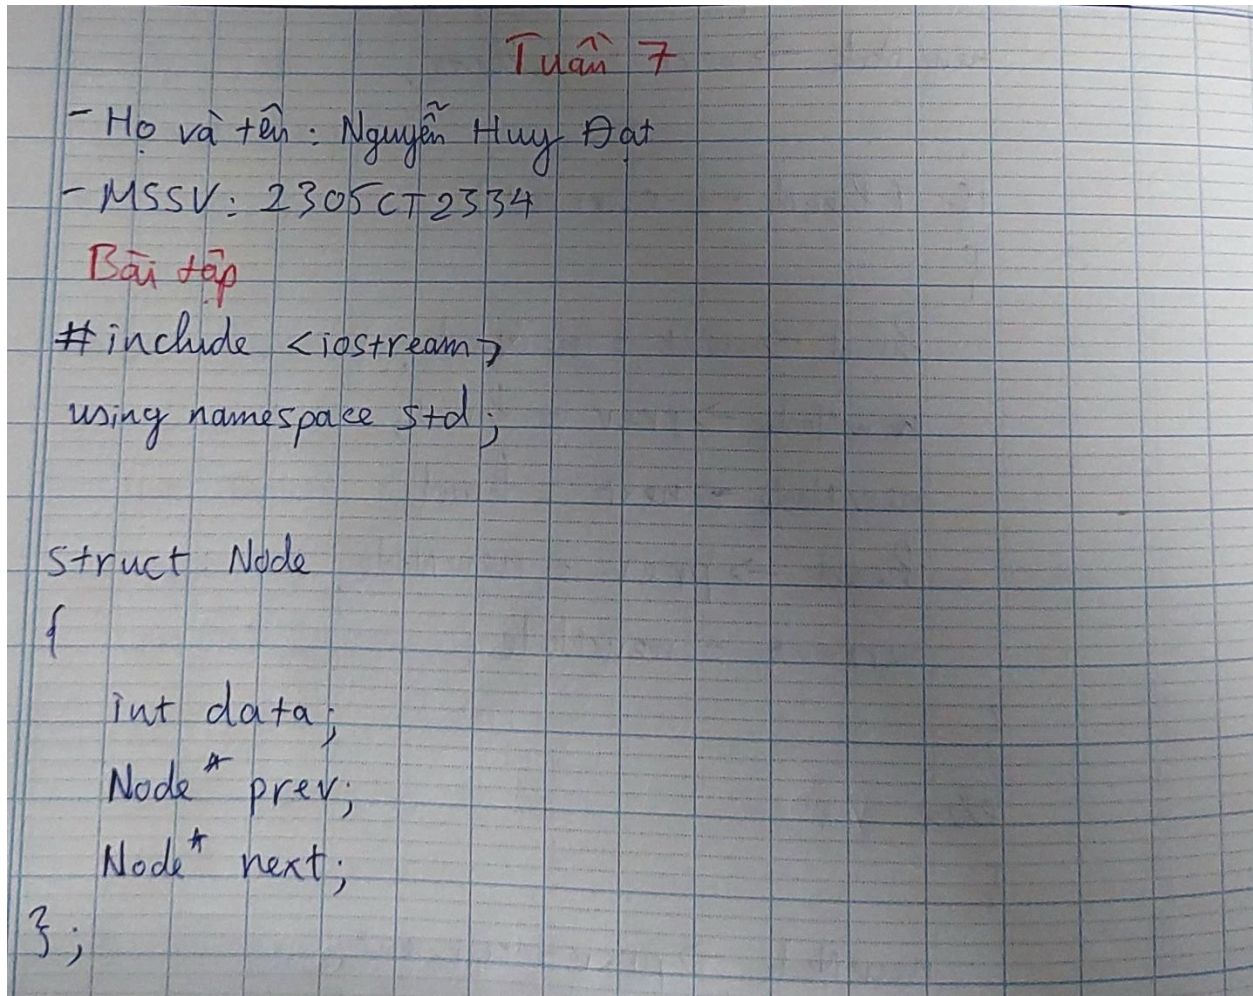 Tuần 7
- Họ và tên: Nguyễn Huy Đạt
- MSSV: 2305CT2334
Bài tập
#include <iostream>
using namespace std;
struct Node
{
int data;
Node* prev;
Node* next;
};